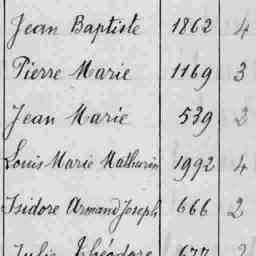 Jean Baptiste 1862 4
Pierre Marie 1169 3
Jean Marie 539 2
Louis Marie Mathurin 1992 4
Isidore Armand Joseph 666 2
Jules Théodore 677 2